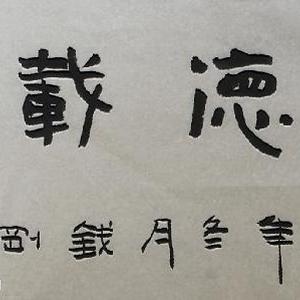 德載
年冬月錢剛